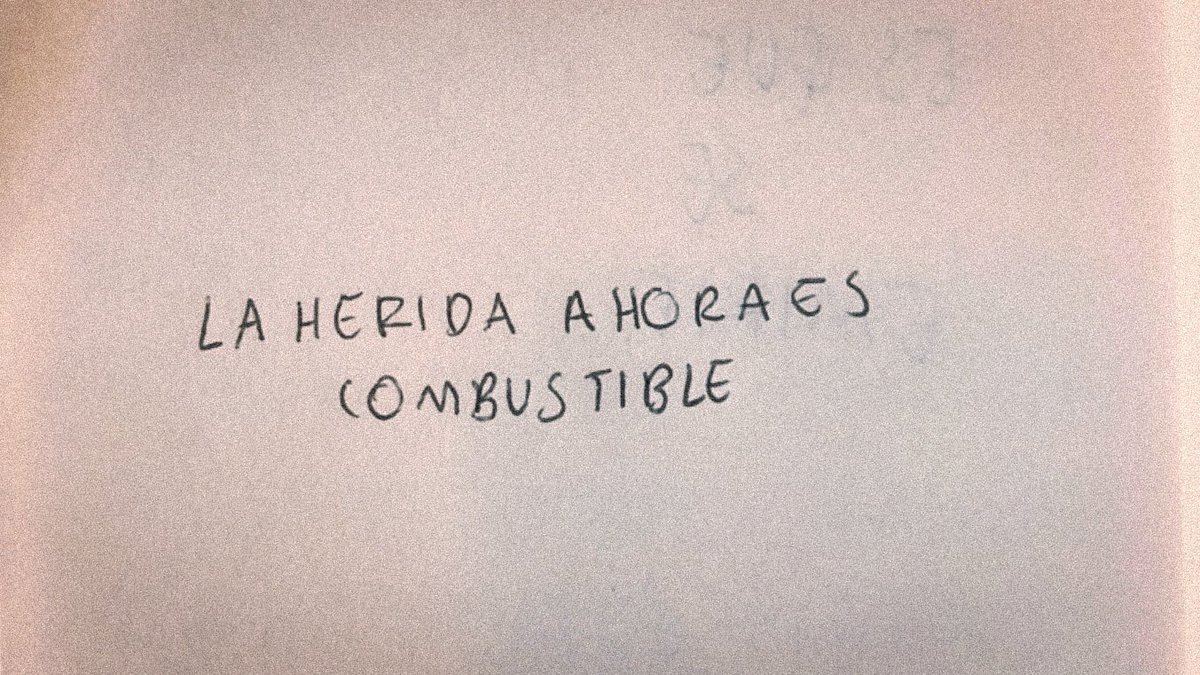 LA HERIDA AHORA ES
COMBUSTIBLE